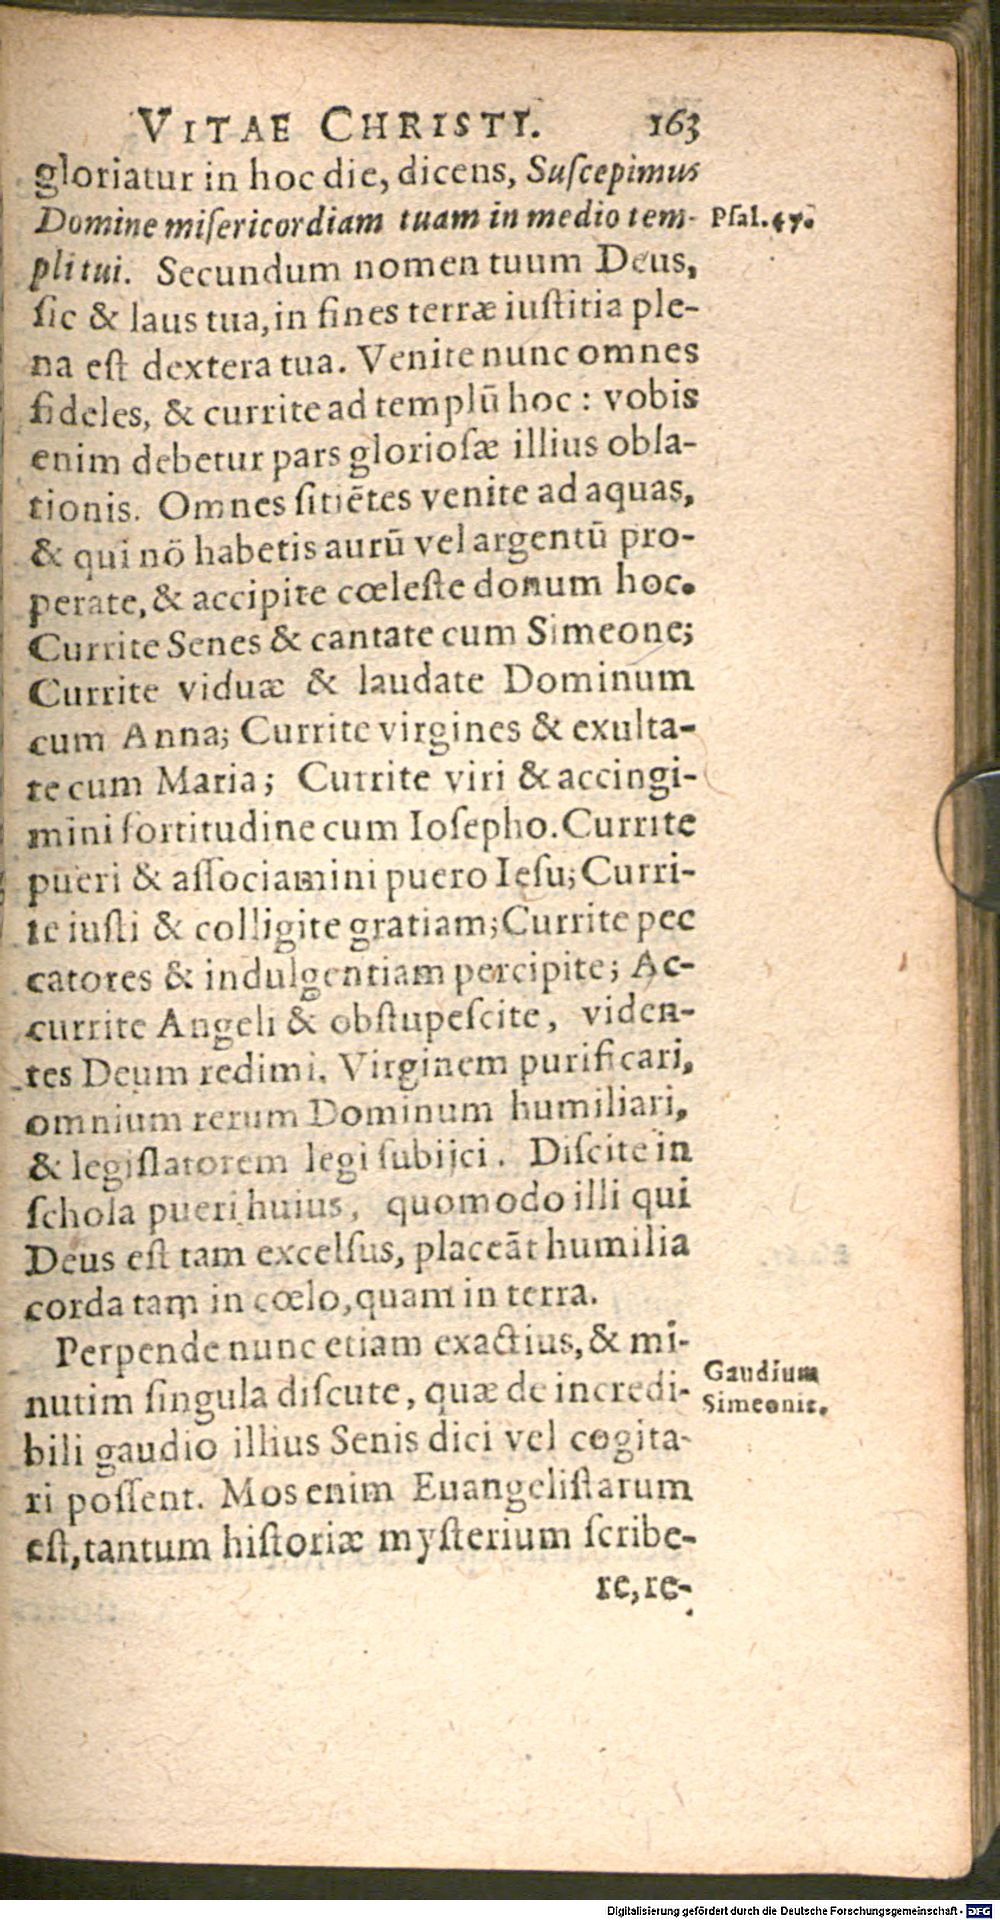 VITAE CHRISTI. 163
gloriatur in hoc die, dicens, Suſcepimus
Domine miſericordiam tuam in medio tem- Pſal. 47.
pli tui. Secundum nomen tuum Deus,
ſic & laus tua, in fines terræ iuſtitia ple-
na eſt dextera tua. Venite nunc omnes
fideles, & currite ad templū hoc : vobis
enim debetur pars glorioſæ illius obla-
tionis. Omnes ſitiētes venite ad aquas,
& qui nō habetis aurū vel argentū pro-
perate, & accipite cœleſte donum hoc.
Currite Senes & cantate cum Simeone;
Currite viduæ & laudate Dominum
cum Anna; Currite virgines & exulta-
te cum Maria; Currite viri & accingi-
mini fortitudine cum Ioſepho. Currite
pueri & aſſociamini puero Ieſu; Curri-
te iuſti & colligite gratiam; Currite pec
catores & indulgentiam percipite; Ac-
currite Angeli & obſtupeſcite, viden-
tes Deum redimi. Virginem purificari,
omnium rerum Dominum humiliari,
& legiſlatorem legi ſubijci. Diſcite in
ſchola pueri huius, quomodo illi qui
Deus eſt tam excelſus, placeāt humilia
corda tam in cœlo, quam in terra.
Perpende nunc etiam exactius, & mi-
nutim ſingula diſcute, quæ de incredi- Gaudium
Simeonis.
bili gaudio illius Senis dici vel cogita-
ri poſſent. Mos enim Euangeliſtarum
eſt, tantum hiſtoriæ myſterium ſcribe-
re, re-
Digitalisierung gefördert durch die Deutsche Forschungsgemeinschaft - DFG